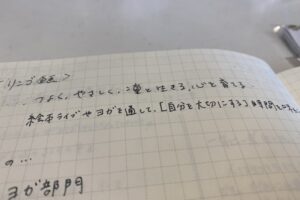 リンゴ企画>
つよく、やさしく、凛と生きる、心を育てる
絵本ライブやヨガを通して、[自分を大切にする]時間
の...
ヨガ部門